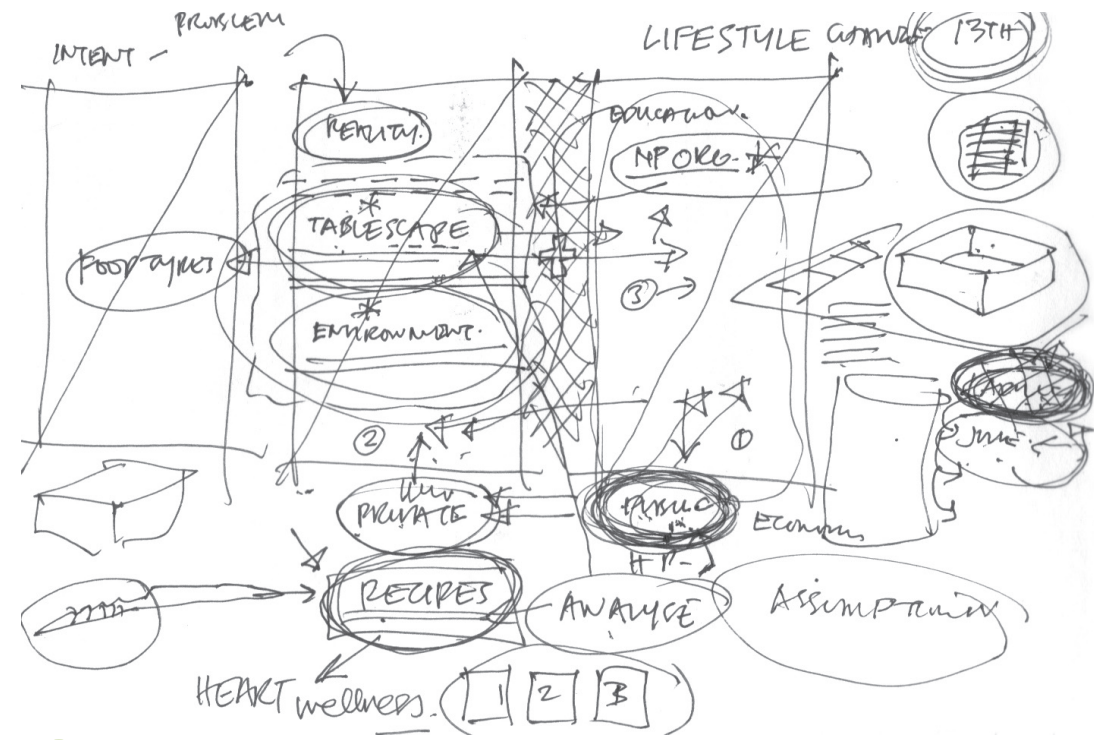 PROBLEM
INTENT -
LIFESTYLE CHANGE
13TH
REALITY.
EDUCATION.
NP ORG.
TABLESCAPE
FOOD TYPES
③
ENVIRONMENT.
②
①
JUNE.
PRIVATE
PUBLIC
RECIPES
ANALYSE
ASSUMPTION
HEART wellness.
1 2 3